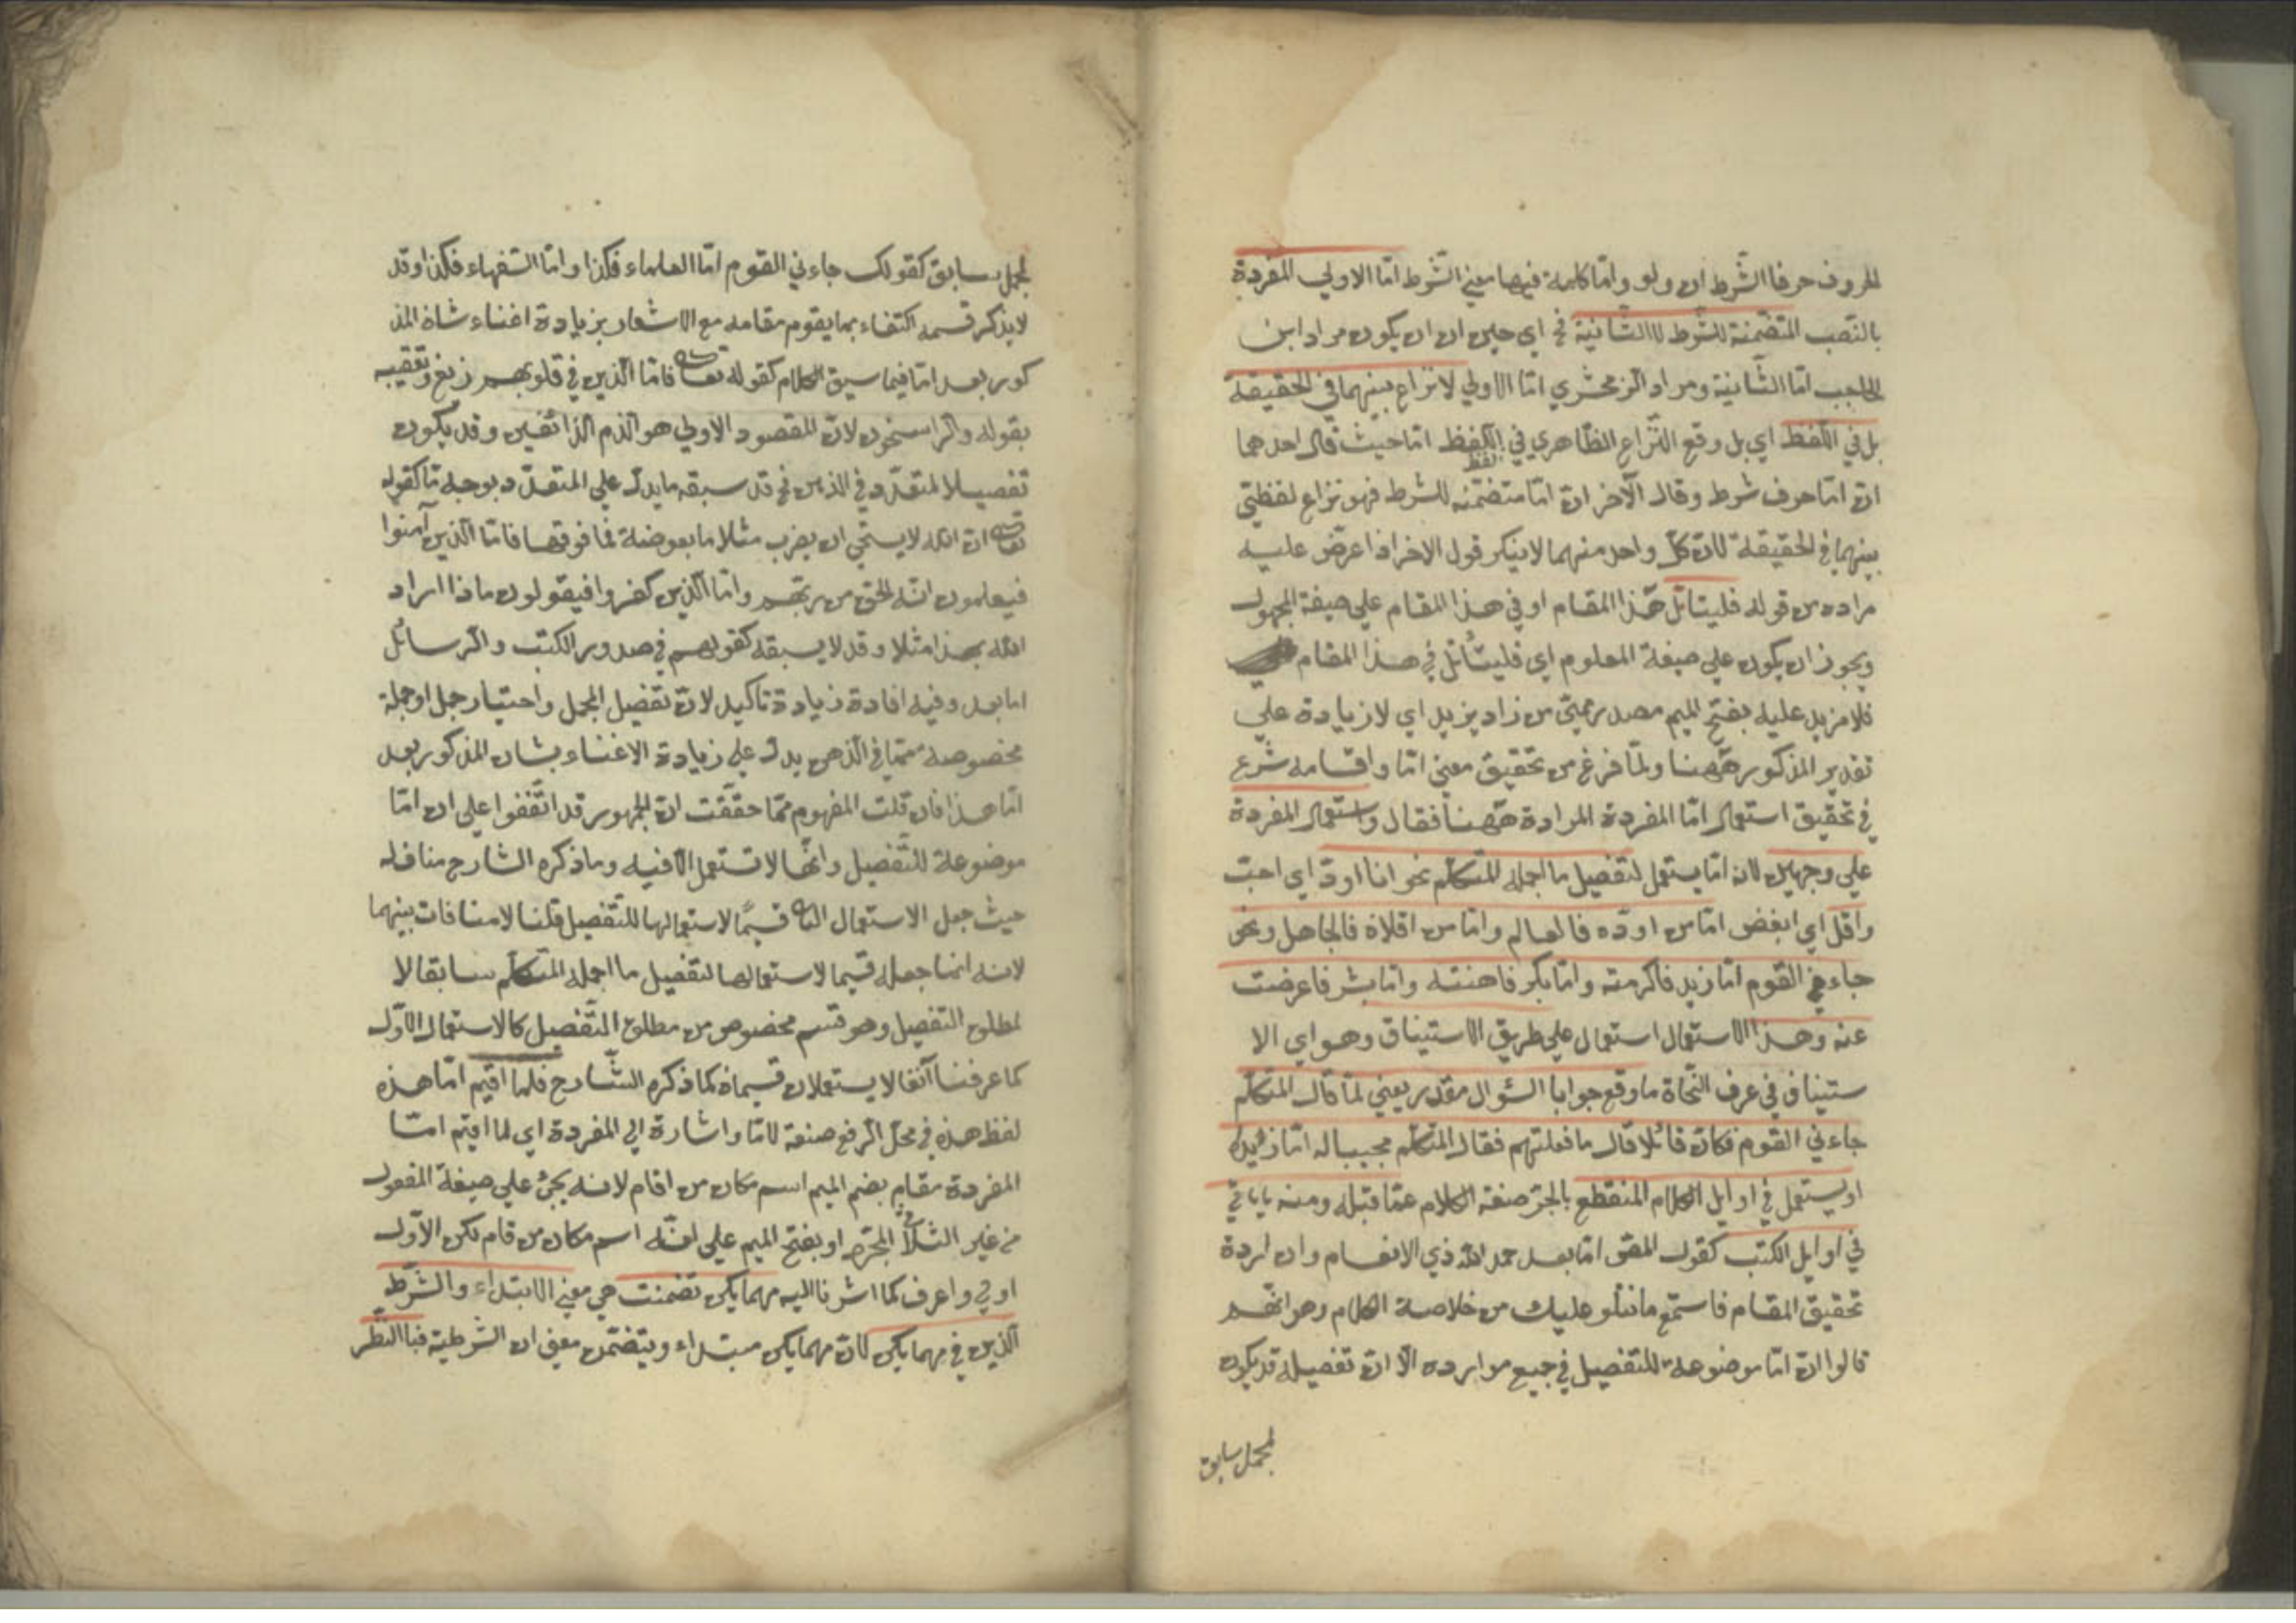 الحروف حرفا الشّرط ان ولو واما كلمة فيها معني الشّرط امّا الاولي المفردة
بالنّصب المتضمّنة للشّرط لا الثّانية فح اي حين ان ان يكون مراد ابن
الحاجب امّا الثّانية ومراد الزمخشري امّا الاولي لا نزاع بينهما في الحقيقة
بل في اللّفظ اي بل وقع النّزاع الظّاهري في اللّفظ امّا حيث قال احدهما
انّ امّا حرف شرط وقال الآخر انّ امّا متضمّنه للشرط فهو نزاع لفظيّ
بينهما في الحقيقة لانّ كلّ واحد منهما لا ينكر قول الاخر اذا عرض عليه
مراده من قوله فليتأمّل هذا المقام او في هذا المقام علي صيغة المجهول
ويجوز ان يكون علي صيغة المعلوم اي فليتأمّل في هذا المقام
فلا مزيد عليه بفتح الميم مصدر ميميّ من زاد يزيد اي لا زيادة علي
تقدير المذكور ههنا ولمّا فرغ من تحقيق معني امّا واقسامه شرع
في تحقيق استعمال امّا المفردة المرادة ههنا فقال واستعمال المفردة
علي وجهين لان امّا يستعمل لتفصيل ما اجمله المتكلّم نحو انا اودّ اي احبّ
واقل اي ابغض امّا من اودّه فالعالم وامّا من اقلاه فالجاهل ونحو
جاءني القوم امّا زيد فاكرمته وامّا بكر فاهنته وامّا بشر فاعرضت
عنه وهذا الاستعمال استعمال علي طريق الاستيناف وهو اي الا
ستيناف في عرف النّحاة ما وقع جوابا السّؤال مقدر يعني لمّا قال المتكلّم
جاءني القوم فكانّ قائلا قال ما فعلتهم فقال المتكلّم مجيبا له امّا زيد
او يستعمل في اوايل الكلام المنقطع بالجرّ صفة الكلام عمّا قبله ومنه ما ياتي
في اوايل الكتب كقول المص امّا بعد حمد الله ذي الانعام وان اردة
تحقيق المقام فاستمع ما نتلو عليك من خلاصة الكلام وهو انّهم
قالوا انّ امّا موضوعة للتفصيل في جميع موارده الّا انّ تفصيله قد يكون
لمجمل سابق
لمجمل سابق كقولك جاءني القوم امّا العلماء فكذا وامّا السّفهاء فكذا وقد
لا يذكر قسمه اكتفاء بما يقوم مقامه مع الاشعار بزيادة اغناء شاة المذ
كور بعد امّا فيما سيق الكلام كقوله تعا فامّا الّذين في قلوبهم زيغ وتعقيبه
بقوله والرّاسخون لانّ المقصود الاولي هو الذم الزائغين وقد يكون
تفصيلا لمتعدّد في الذهن فح قد سبقه ما يدلّ علي المتعدّد بوجه مّا كقوله
تعا انّ الله لا يستحي ان يضرب مثلا ما بعوضة فما فوقها فامّا الّذين آمنوا
فيعلمون انّه الحق من ربّهم وامّا الّذين كفروا فيقولون ماذا اراد
الله بهذا مثلا وقد لا يسبقه كقولهم في صدور الكتب والرّسائل
اما بعد وفيه افادة زيادة تاكيد لانّ تفصيل المجمل واختيار جمل او جملة
مخصوصة ممّا في الذهن يدلّ علي زيادة الاغناء بشان المذكور بعد
امّا هذا فان قلت المفهوم ممّا حققت انّ الجمهور قد اتّفقوا علي ان امّا
موضوعة للتّفصيل وانّها لا تستعمل الا فيه وما ذكره الشارح مناف له
حيث جعل الاستعمال الثا قسيمًا لاستعمالها للتّفصيل قلنا لا منافات بينهما
لانه انما جعله قسيما لاستعمالها لتفصيل ما اجمله المتكلّم سابقا لا
لمطلق التفصيل وهو قسم مخصوص من مطلق التّفصيل كالاستعمال الاوّل
كما عرفنا آنفا لا يستعملان قسيماه كما ذكره الشّارح فلما اقيم امّا هذه
لفظ هذه في محلّ الرّفع صفة لامّا واشارة الي المفردة اي لما اقيم امّا
المفردة مقام بضم الميم اسم مكان من اقام لانه يجئ علي صيغة المفعول
من غير الثلاثي المجرّد او بفتح الميم علي انّه اسم مكان من قام لكن الاوّل
اولي واعرف كما اشرنا اليه مهما يكن تضمنت هي معني الابتداء والشّرط
الّذين في مهما يكن لانّ مهما يكن مبتداء ويتضمّن معني ان الشّرطية فبا النّظر